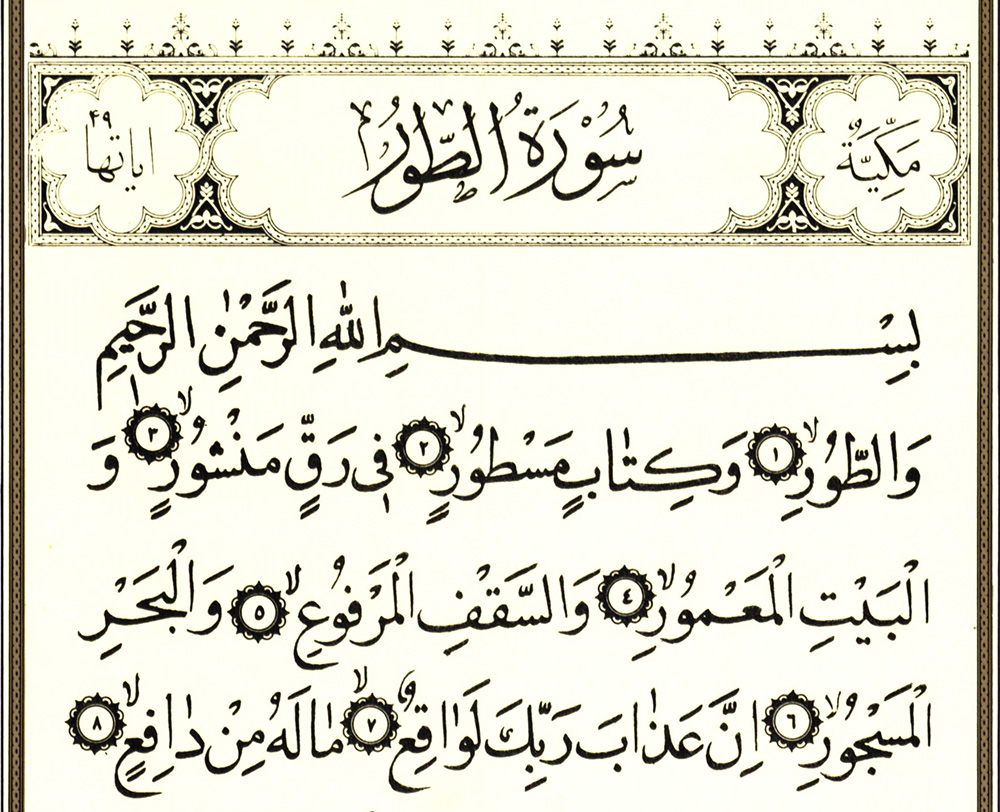 مَكِّيَّةٌ سُوْرَةُ الطُّوْرِ اٰيَاتُهَا ٤٩
بِسْمِ اللّٰهِ الرَّحْمٰنِ الرَّحٖيمِ
وَالطُّوْرِۙ ﴿١﴾ وَكِتَابٍ مَسْطُورٍۙ ﴿٢﴾ فٖي رَقٍّ مَنْشُورٍۙ ﴿٣﴾ وَ
الْبَيْتِ الْمَعْمُورِۙ ﴿٤﴾ وَالسَّقْفِ الْمَرْفُوعِۙ ﴿٥﴾ وَالْبَحْرِ
الْمَسْجُورِۙ ﴿٦﴾ اِنَّ عَذَابَ رَبِّكَ لَوَاقِعٌۙ ﴿٧﴾ مَا لَهُ مِنْ دَافِعٍۙ ﴿٨﴾